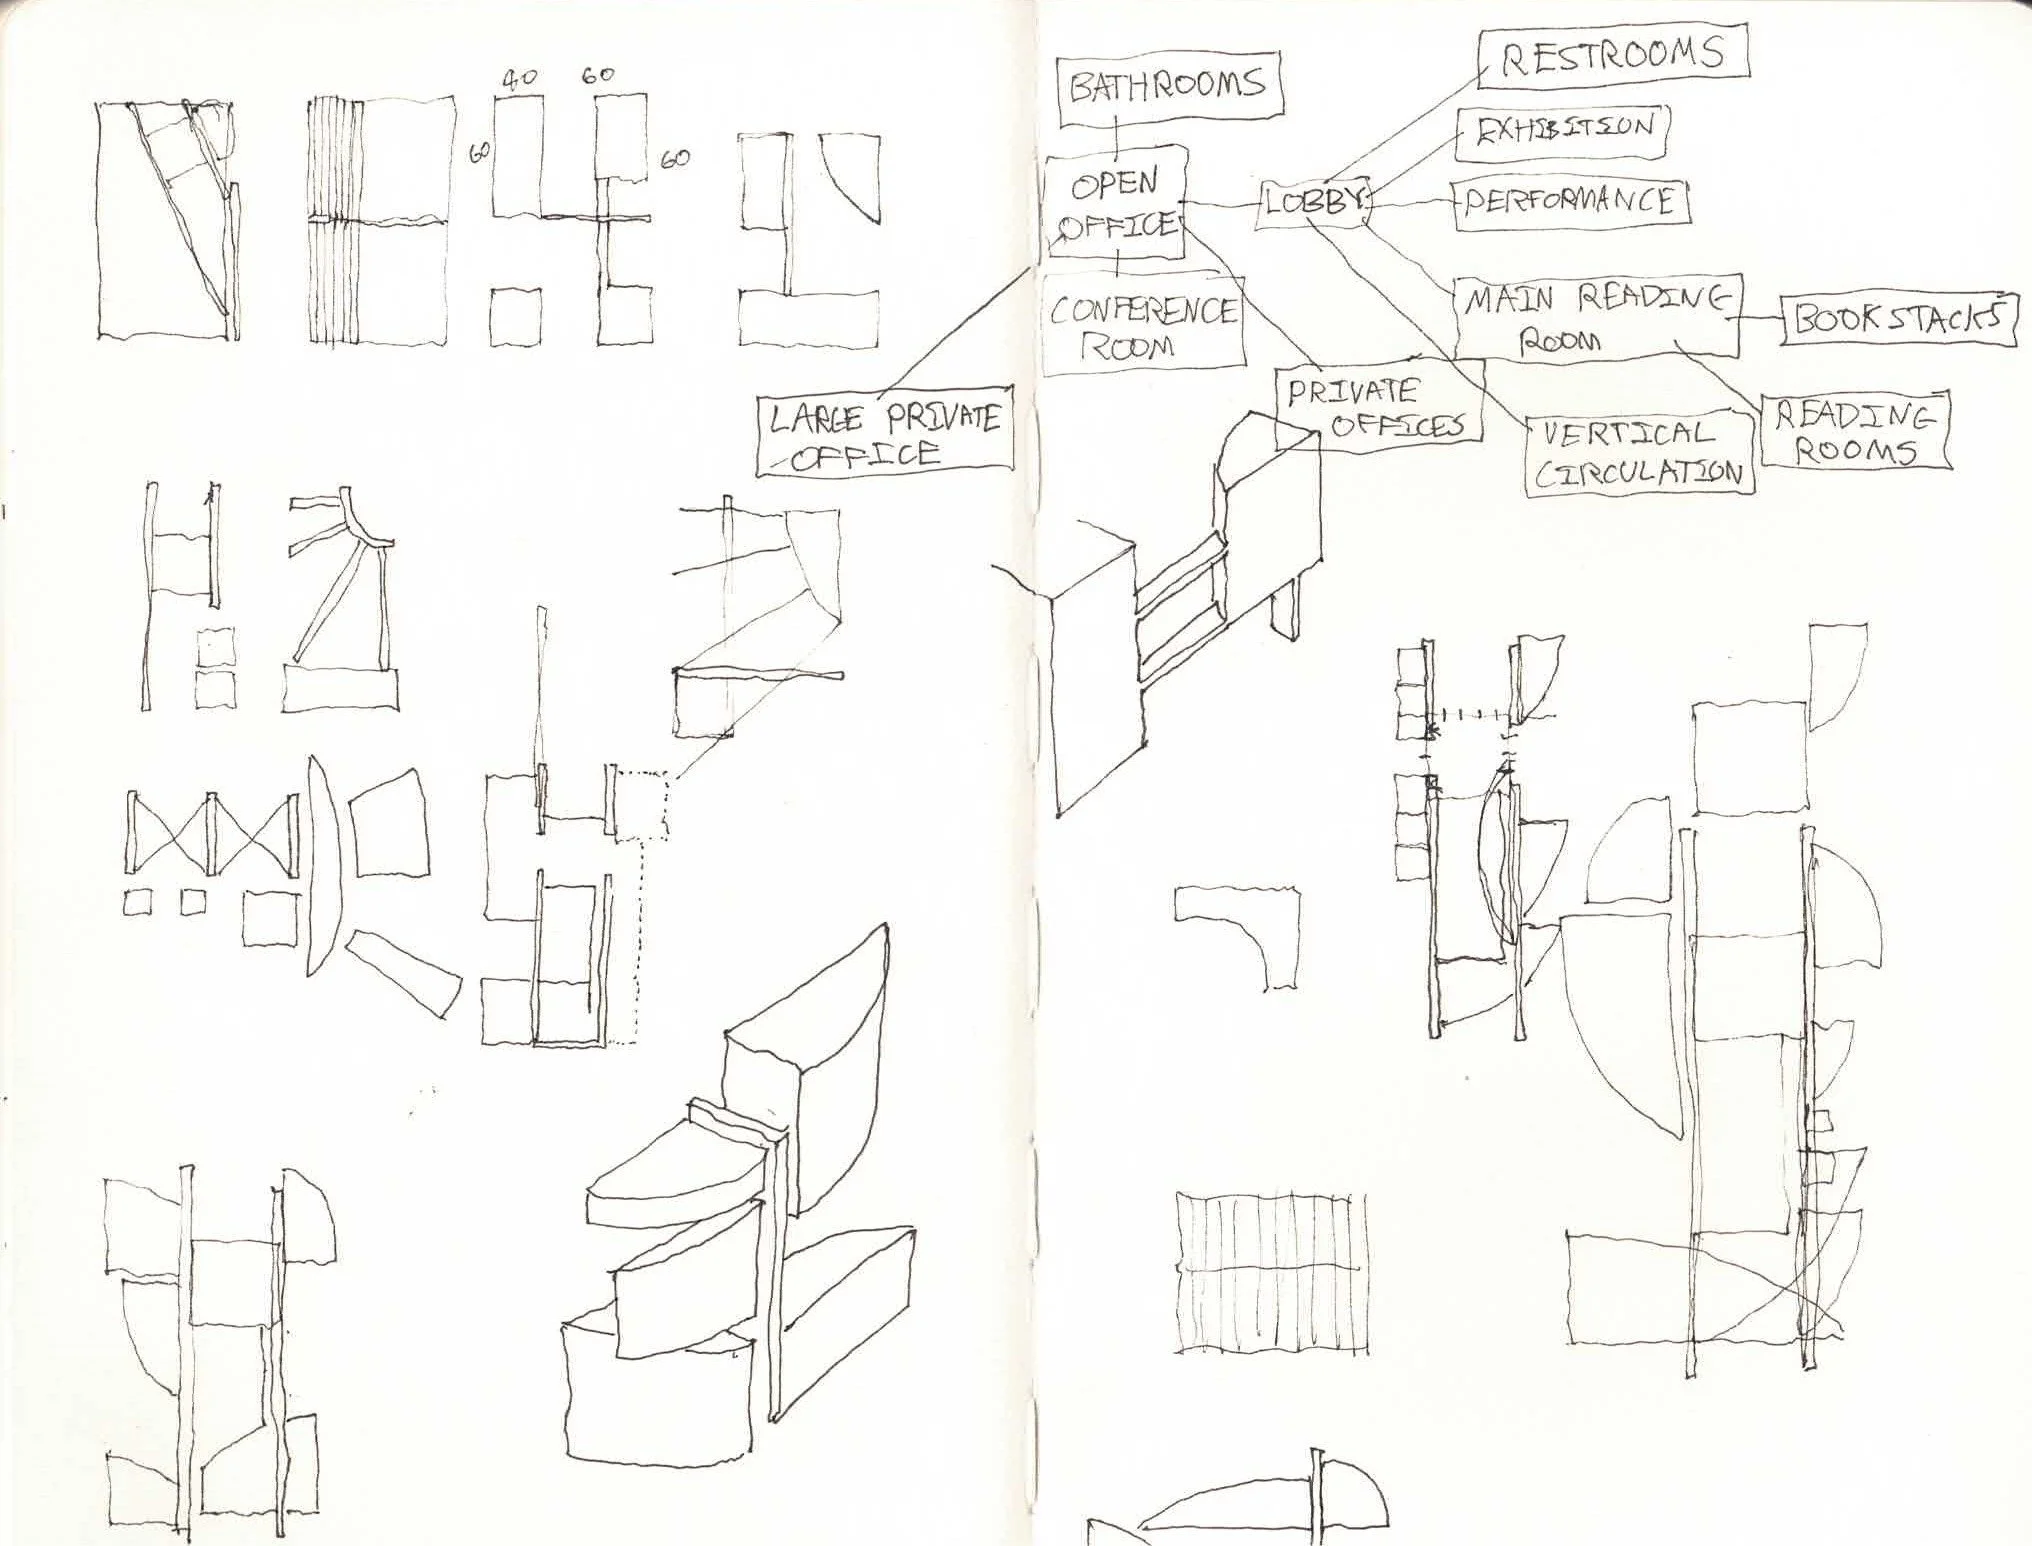 40 60
60
60
BATHROOMS
RESTROOMS
EXHIBITION
OPEN
OFFICE
LOBBY
PERFORMANCE
CONFERENCE
ROOM
MAIN READING
ROOM
BOOKSTACKS
LARGE PRIVATE
OFFICE
PRIVATE
OFFICES
VERTICAL
CIRCULATION
READING
ROOMS